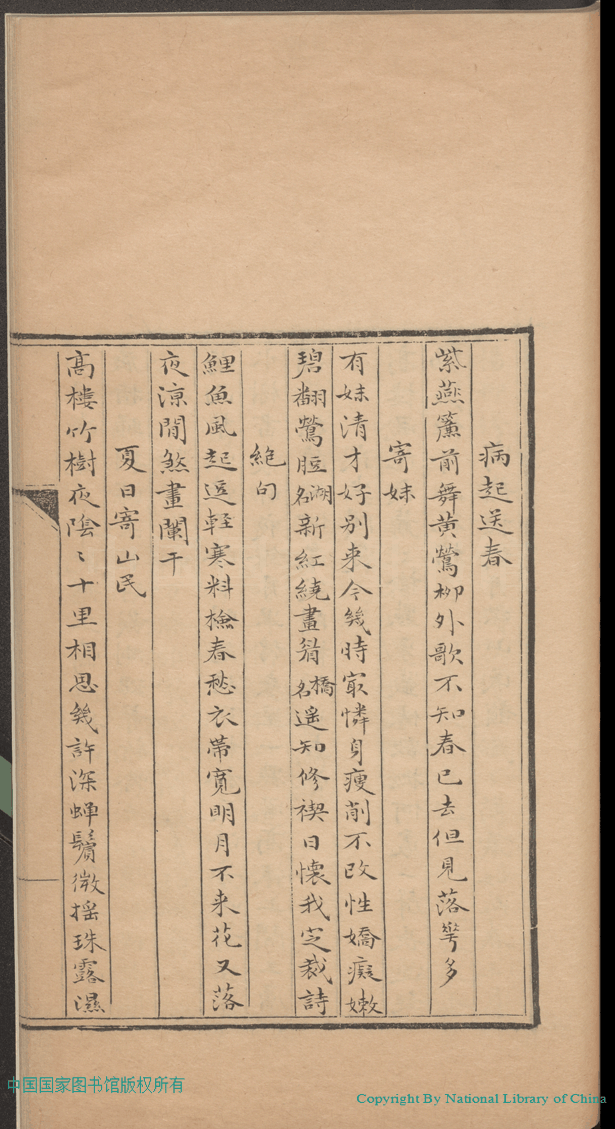 病起送春
紫燕簾前舞黄鶯柳外歌不知春已去但見落華多
寄妹
有妹清才好別来今幾時冣憐身瘦削不改性嬌癡嫩
碧翻鶯脰湖名新紅繞畫眉橋名遥知修禊日懷我定裁詩
絶句
鯉魚風起逗輕寒料檢春愁衣帶寬明月不来花又落
夜涼閒煞畫闌干
夏日寄山民
高樓竹樹夜陰〻十里相思幾許深蟬鬢微摇珠露濕
中国国家图书馆版权所有
Copyright By National Library of China